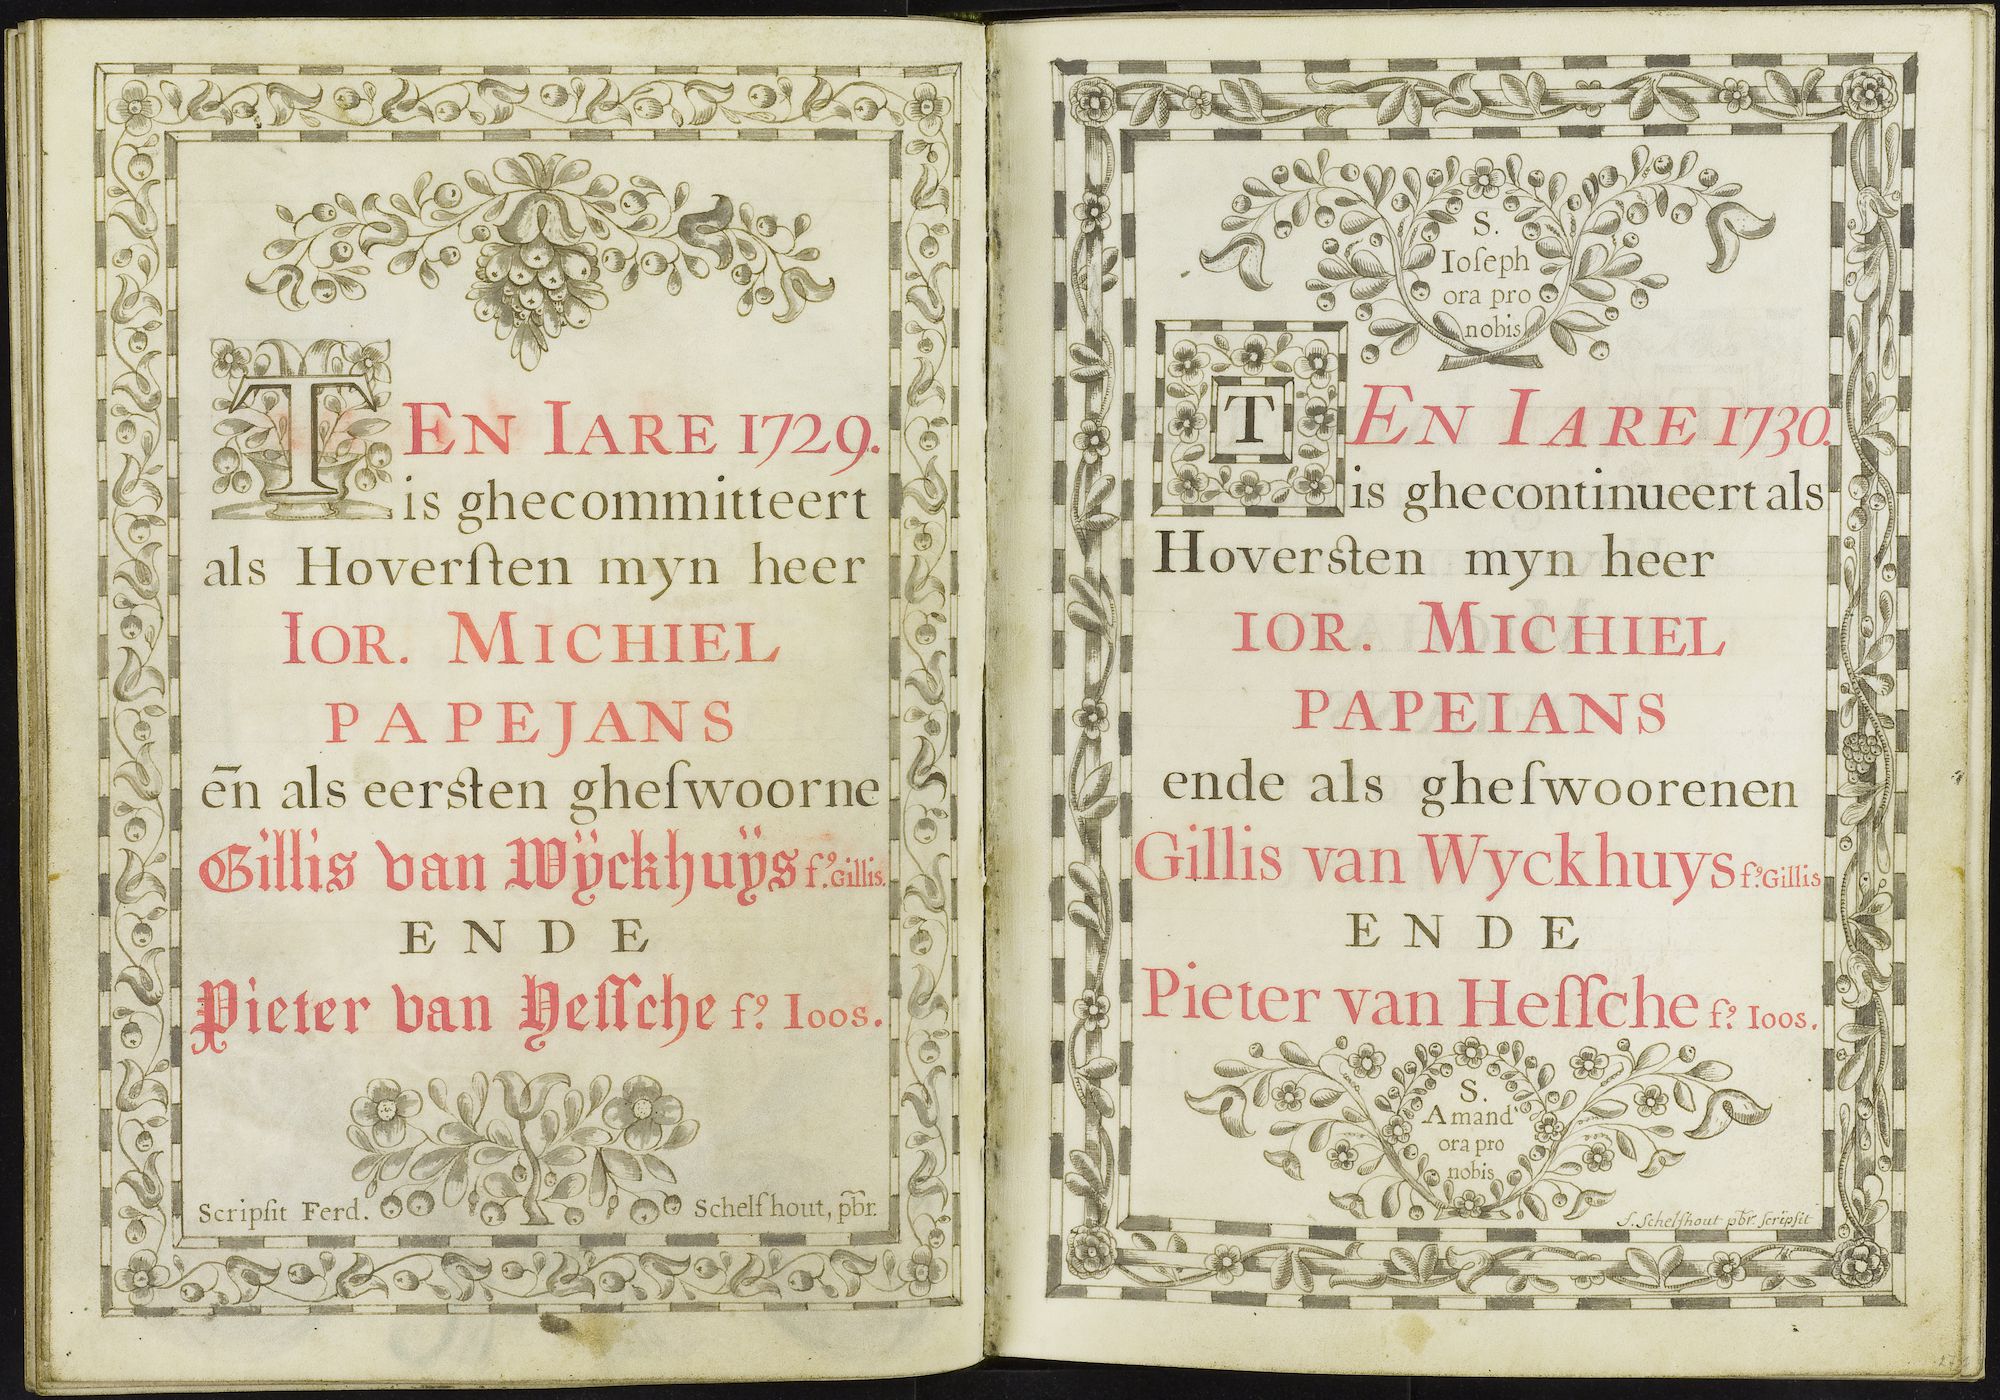 TEN IARE 1729.
is ghecommitteert
als Hoverſten myn heer
IOR. MICHIEL
PAPEJANS
en̄ als eersten gheſwoorne
Gillis van Wÿckhuÿs f.ꝰ Gillis.
ENDE
Pieter van Heſſche f.ꝰ Ioos.
Scripſit Ferd. Schelfhout, pb̄r.
S.
Ioſeph
ora pro
nobis
TEN IARE 1730.
is ghecontinueert als
Hoversten myn heer
IOR. MICHIEL
PAPEIANS
ende als gheſwoorenen
Gillis van Wyckhuys f.ꝰ Gillis
ENDE
Pieter van Heſſche f.ꝰ Ioos.
S.
Amandꝰ
ora pro
nobis
Schelfhout pb̄r. ſcripſit